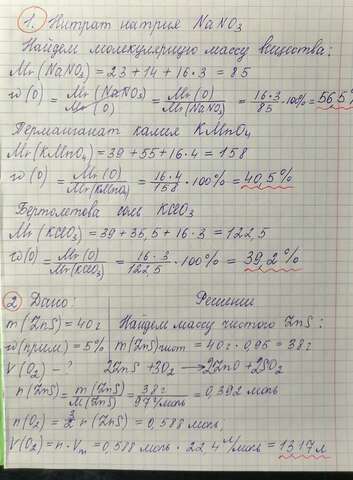 1. Нитрат натрия NaNO3
Найдем молекулярную массу вещества:
Mr(NaNO3) = 23 + 14 + 16·3 = 85
w(O) = Mr(NaNO3)/Mr(O) = Mr(O)/Mr(NaNO3) = 16·3/85 · 100% = 56,5
Перманганат калия KMnO4
Mr(KMnO4) = 39 + 55 + 16·4 = 158
w(O) = Mr(O)/Mr(KMnO4) = 16·4/158 · 100% = 40,5%
Бертолетова соль KClO3
Mr(KClO3) = 39 + 35,5 + 16·3 = 122,5
w(O) = Mr(O)/Mr(KClO3) = 16·3/122,5 · 100% = 39,2%
2 Дано: Решение
m(ZnS) = 40 г Найдем массу чистого ZnS:
w(прим) = 5% m(ZnS)чист = 40г · 0,95 = 38г
V(O2) - ? 2ZnS + 3O2 → 2ZnO + 2SO2
n(ZnS) = m(ZnS)/M(ZnS) = 38г/97г/моль = 0,392 моль
n(O2) = 3/2 n(ZnS) = 0,588 моль;
V(O2) = n · Vm = 0,588 моль · 22,4 л/моль = 13,17 л